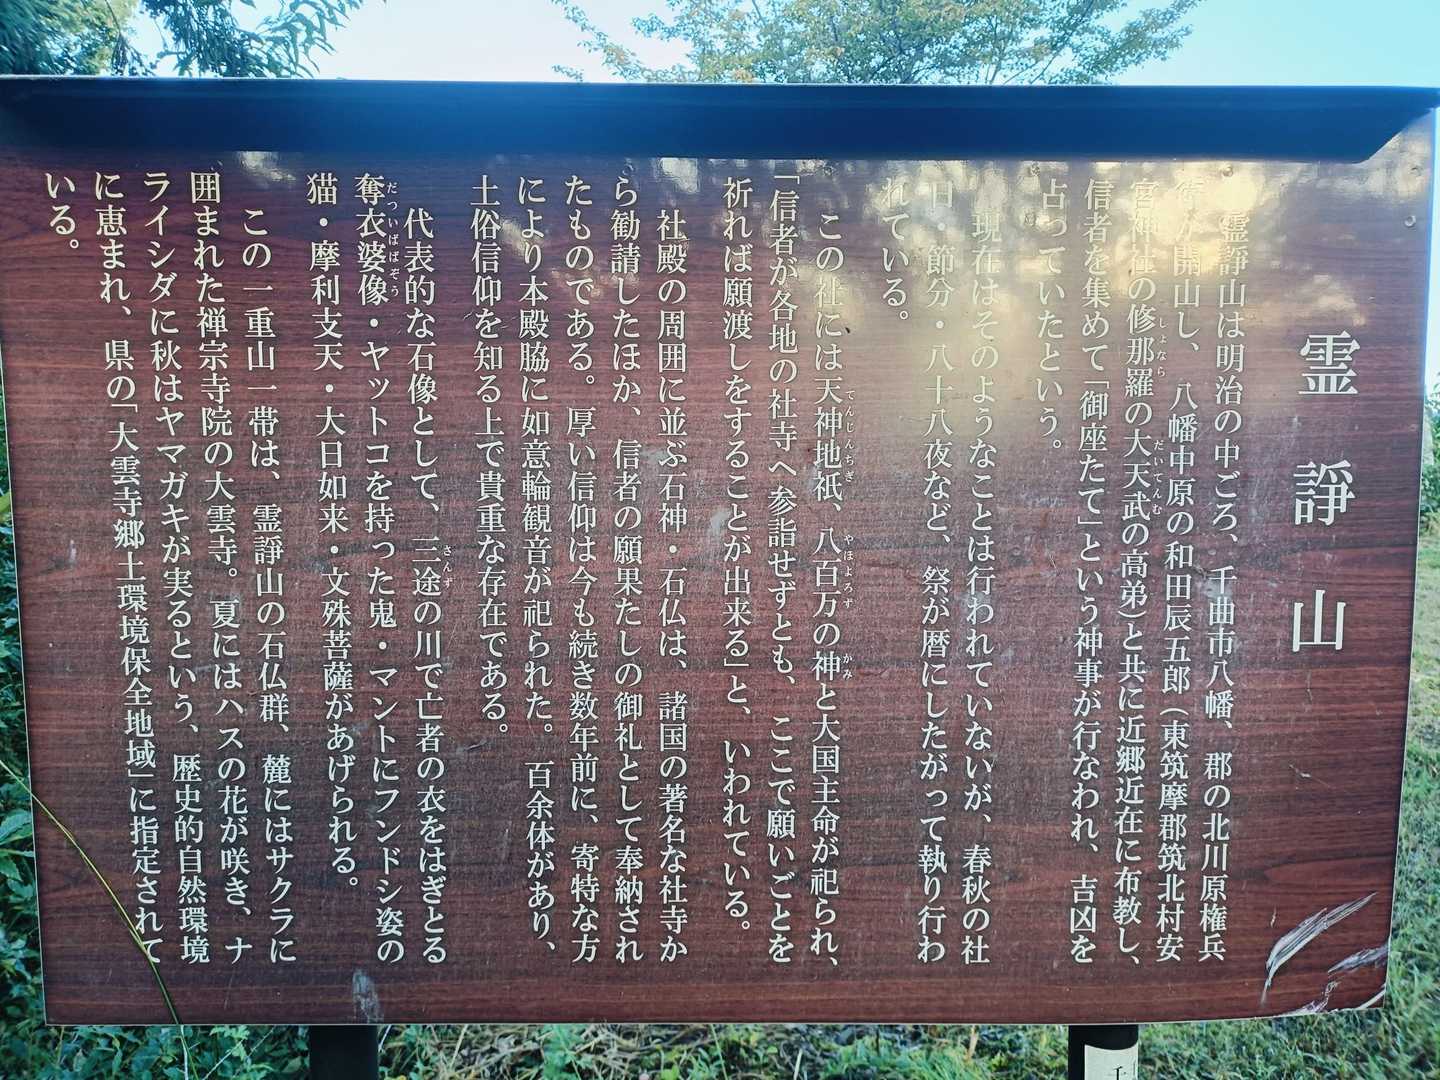 霊諍山
霊諍山は明治の中ごろ、千曲市八幡、郡の北川原権兵
衛が開山し、八幡中原の和田辰五郎(東筑摩郡筑北村安
宮神社の修那羅の大天武の高弟)と共に近郷近在に布教し、
信者を集めて「御座たて」という神事が行なわれ、吉凶を
占っていたという。
現在はそのようなことは行われていないが、春秋の社
日・節分・八十八夜など、祭が暦にしたがって執り行わ
れている。
この社には天神地祇、八百万の神と大国主命が祀られ、
「信者が各地の社寺へ参詣せずとも、ここで願いごとを
祈れば願渡しをすることが出来る」と、いわれている。
社殿の周囲に並ぶ石神・石仏は、諸国の著名な社寺か
ら勧請したほか、信者の願果たしの御礼として奉納され
たものである。厚い信仰は今も続き数年前に、寄特な方
により本殿脇に如意輪観音が祀られた。百余体があり、
土俗信仰を知る上で貴重な存在である。
代表的な石像として、三途の川で亡者の衣をはぎとる
奪衣婆像・ヤットコを持った鬼・マントにフンドシ姿の
猫・摩利支天・大日如来・文殊菩薩があげられる。
この一重山一帯は、霊諍山の石仏群、麓にはサクラに
囲まれた禅宗寺院の大雲寺。夏にはハスの花が咲き、ナ
ライシダに秋はヤマガキが実るという、歴史的自然環境
に恵まれ、県の「大雲寺郷土環境保全地域」に指定されて
いる。